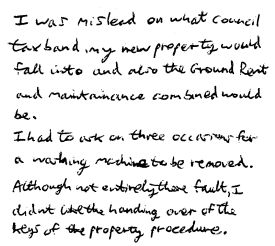 I was mislead on what council
tax band my new property would
fall into and also the Ground Rent
and maintainance combined would
be.
I had to ask on three occasions for
a washing machine to be removed.
Although not entirely there fault, I
didnt like the handing over of the
keys of the property procedure.